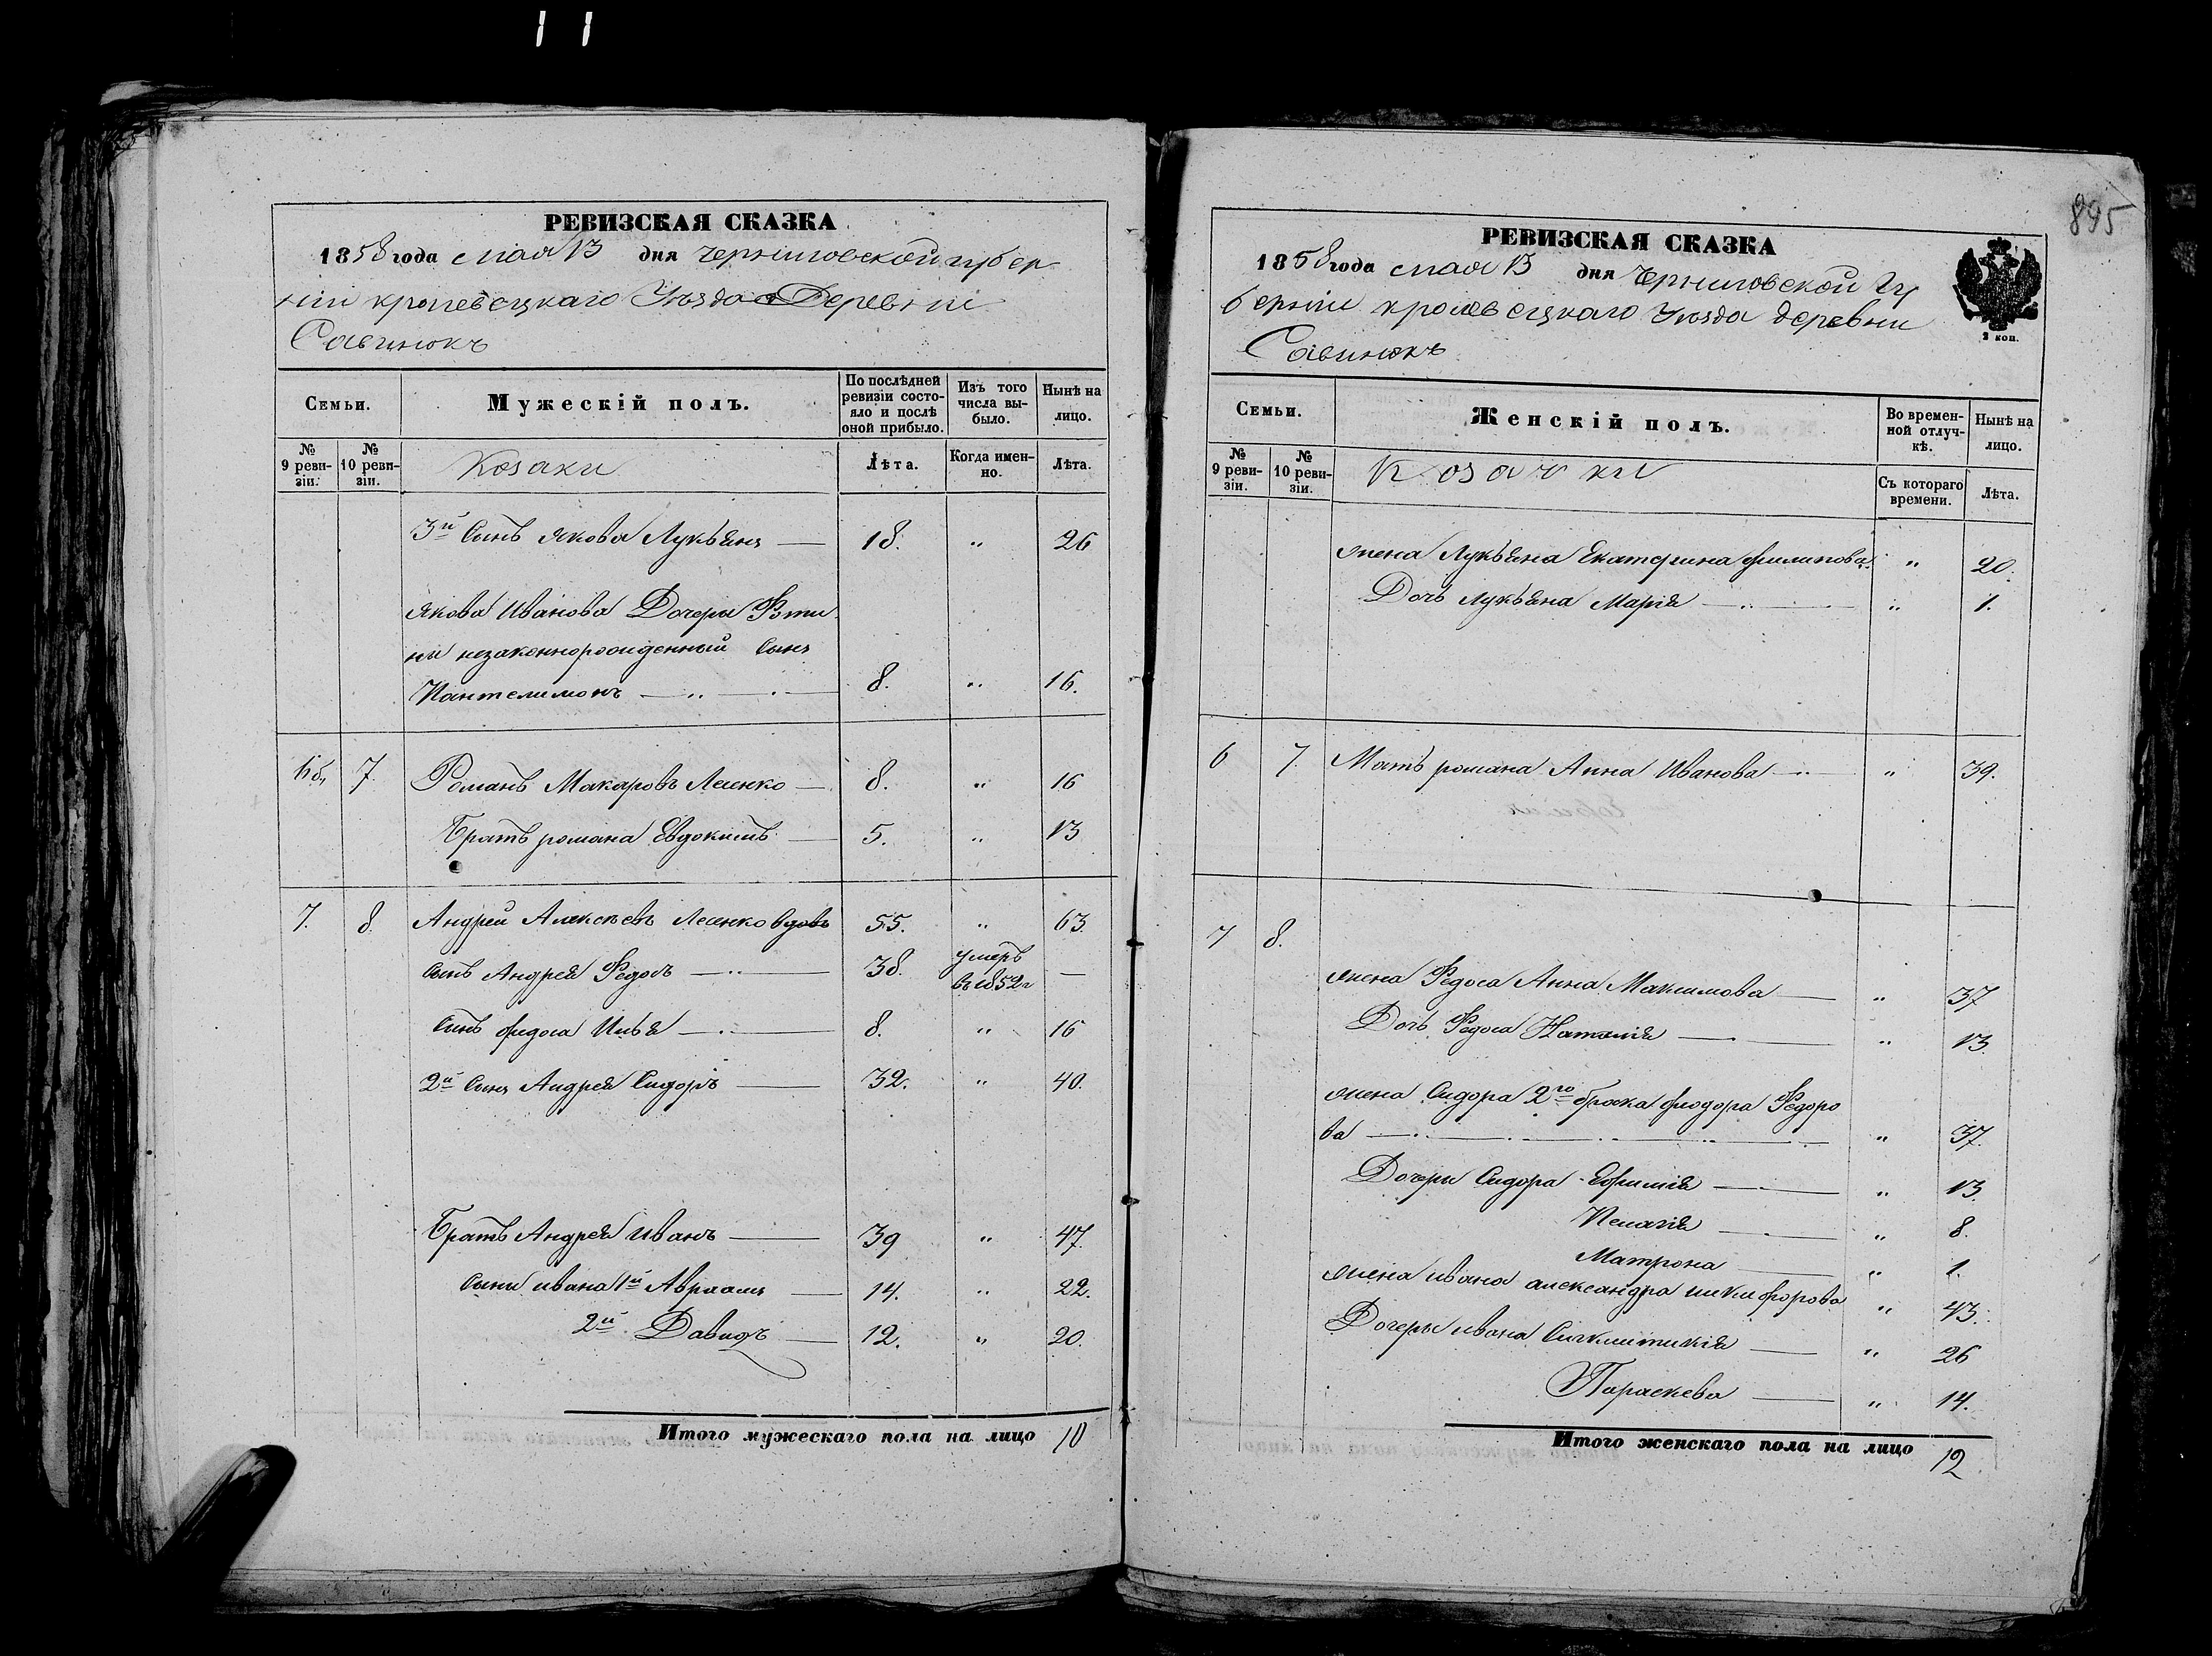 895
РЕВИЗСКАЯ СКАЗКА
1858 года мая 13 дня Черниговской губер
ніи кролевецкаго Уѣзда Деревни
Савинокъ
Семьи.
Мужескій полъ.
По послѣдней ревизіи состояло и послѣ оной прибыло.
Изъ того числа выбыло.
Нынѣ на лицо.
№ 9 ревизіи.
№ 10 ревизіи.
Козаки
Лѣта.
Когда именно.
Лѣта.
3й Сынъ Якова Лукьянъ — 18. " 26
Якова Иванова Дочери
незаконнорожденный Сынъ
Пантелимонъ — 8. " 16.
6 7. Романъ Макаровъ Леенко — 8. " 16
Братъ романа Евдокимъ — 5. " 13
7. 8. Андрей Алексѣевъ Леенко вдовъ 55. " 63.
Сынъ Андрея Ѳедосъ — 38. умеръ въ 1852 г —
Сынъ федоса Илья — 8. " 16
2й Сынъ Андрея Сидоръ — 32. " 40.
Братъ Андрея Иванъ — 39 " 47.
Сыны ивана 1й Авраамъ — 14. " 22.
2й Давидъ — 12. " 20.
Итого мужескаго пола на лицо 10
РЕВИЗСКАЯ СКАЗКА
1858 года мая 13 дня Черниговской Гу
берніи кролевецкаго Уѣзда деревни
Савинокъ
2 коп.
Семьи.
Женскій полъ.
Во временной отлучкѣ.
Нынѣ на лицо.
№ 9 ревизіи.
№ 10 ревизіи.
Козачки
Съ котораго времени.
Лѣта.
жена Лукьяна Екатерина филипова " 20.
Дочь Лукьяна Марія — " 1.
6 7. Мать романа Анна Иванова — " 39.
7 8.
жена Ѳедоса Анна Максимова — " 37
Дочь Ѳедоса Наталія — " 13
жена Сидора 2го брака феодора Ѳедоро
ва — " 37.
Дочери Сидора Ефимія — " 13.
Пелагія — " 8.
Матрона — " 1.
жена ивана александра никифорова " 43.
Дочери ивана — " 26
Параскева — " 14.
Итого женскаго пола на лицо 12